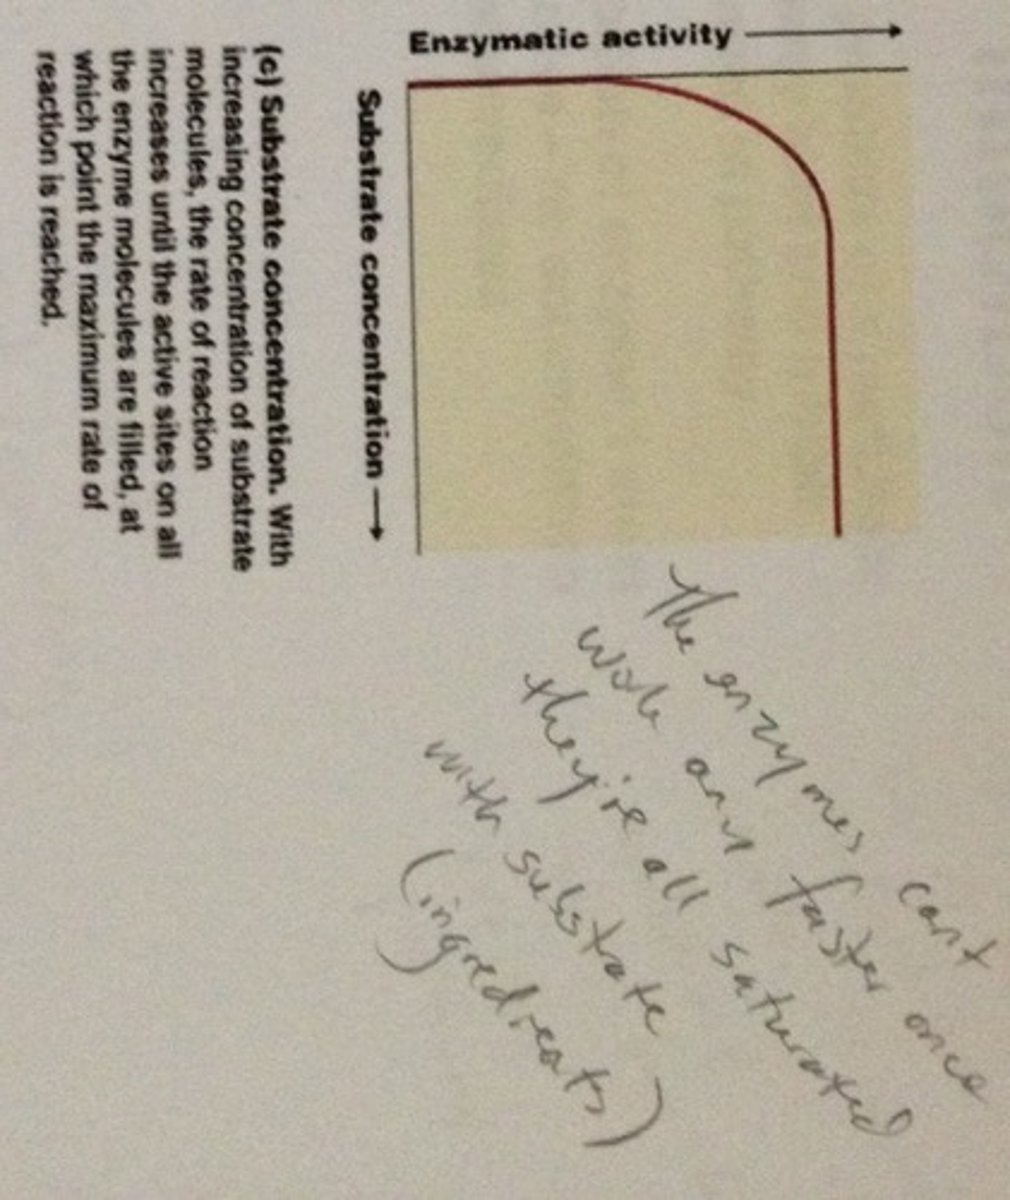 Enzymatic activity
Substrate concentration
(c) Substrate concentration. With
increasing concentration of substrate
molecules, the rate of reaction
increases until the active sites on all
the enzyme molecules are filled, at
which point the maximum rate of
reaction is reached.
The enzymes cant
work any faster once
they're all saturated
with substrate
(ingredients)